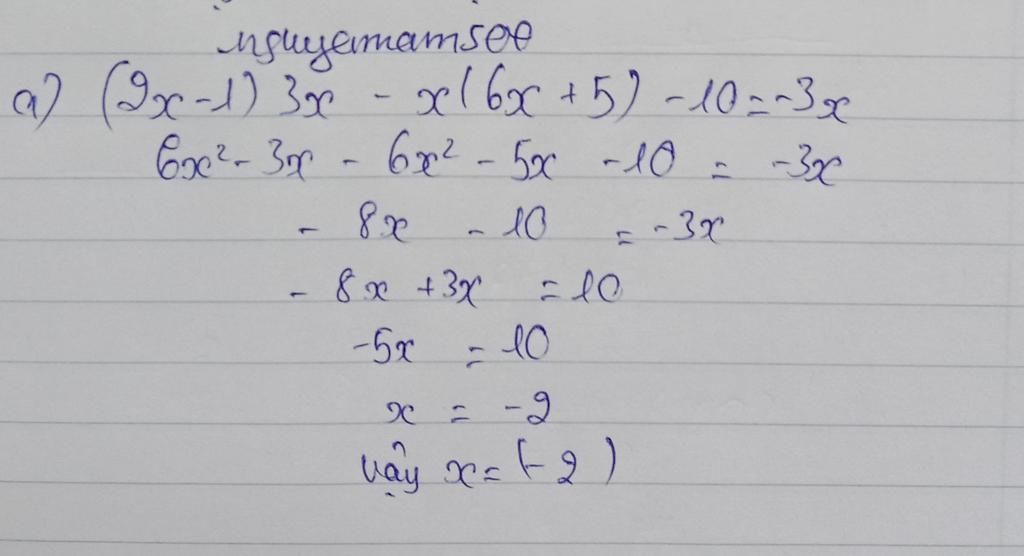 nguyetam500
a) (2x-1) 3x - x(6x+5) -10=-3x
6x² - 3x - 6x² - 5x -10 = -3x
- 8x - 10 = -3x
- 8x +3x = 10
-5x = 10
x = -2
Vậy x = (-2)